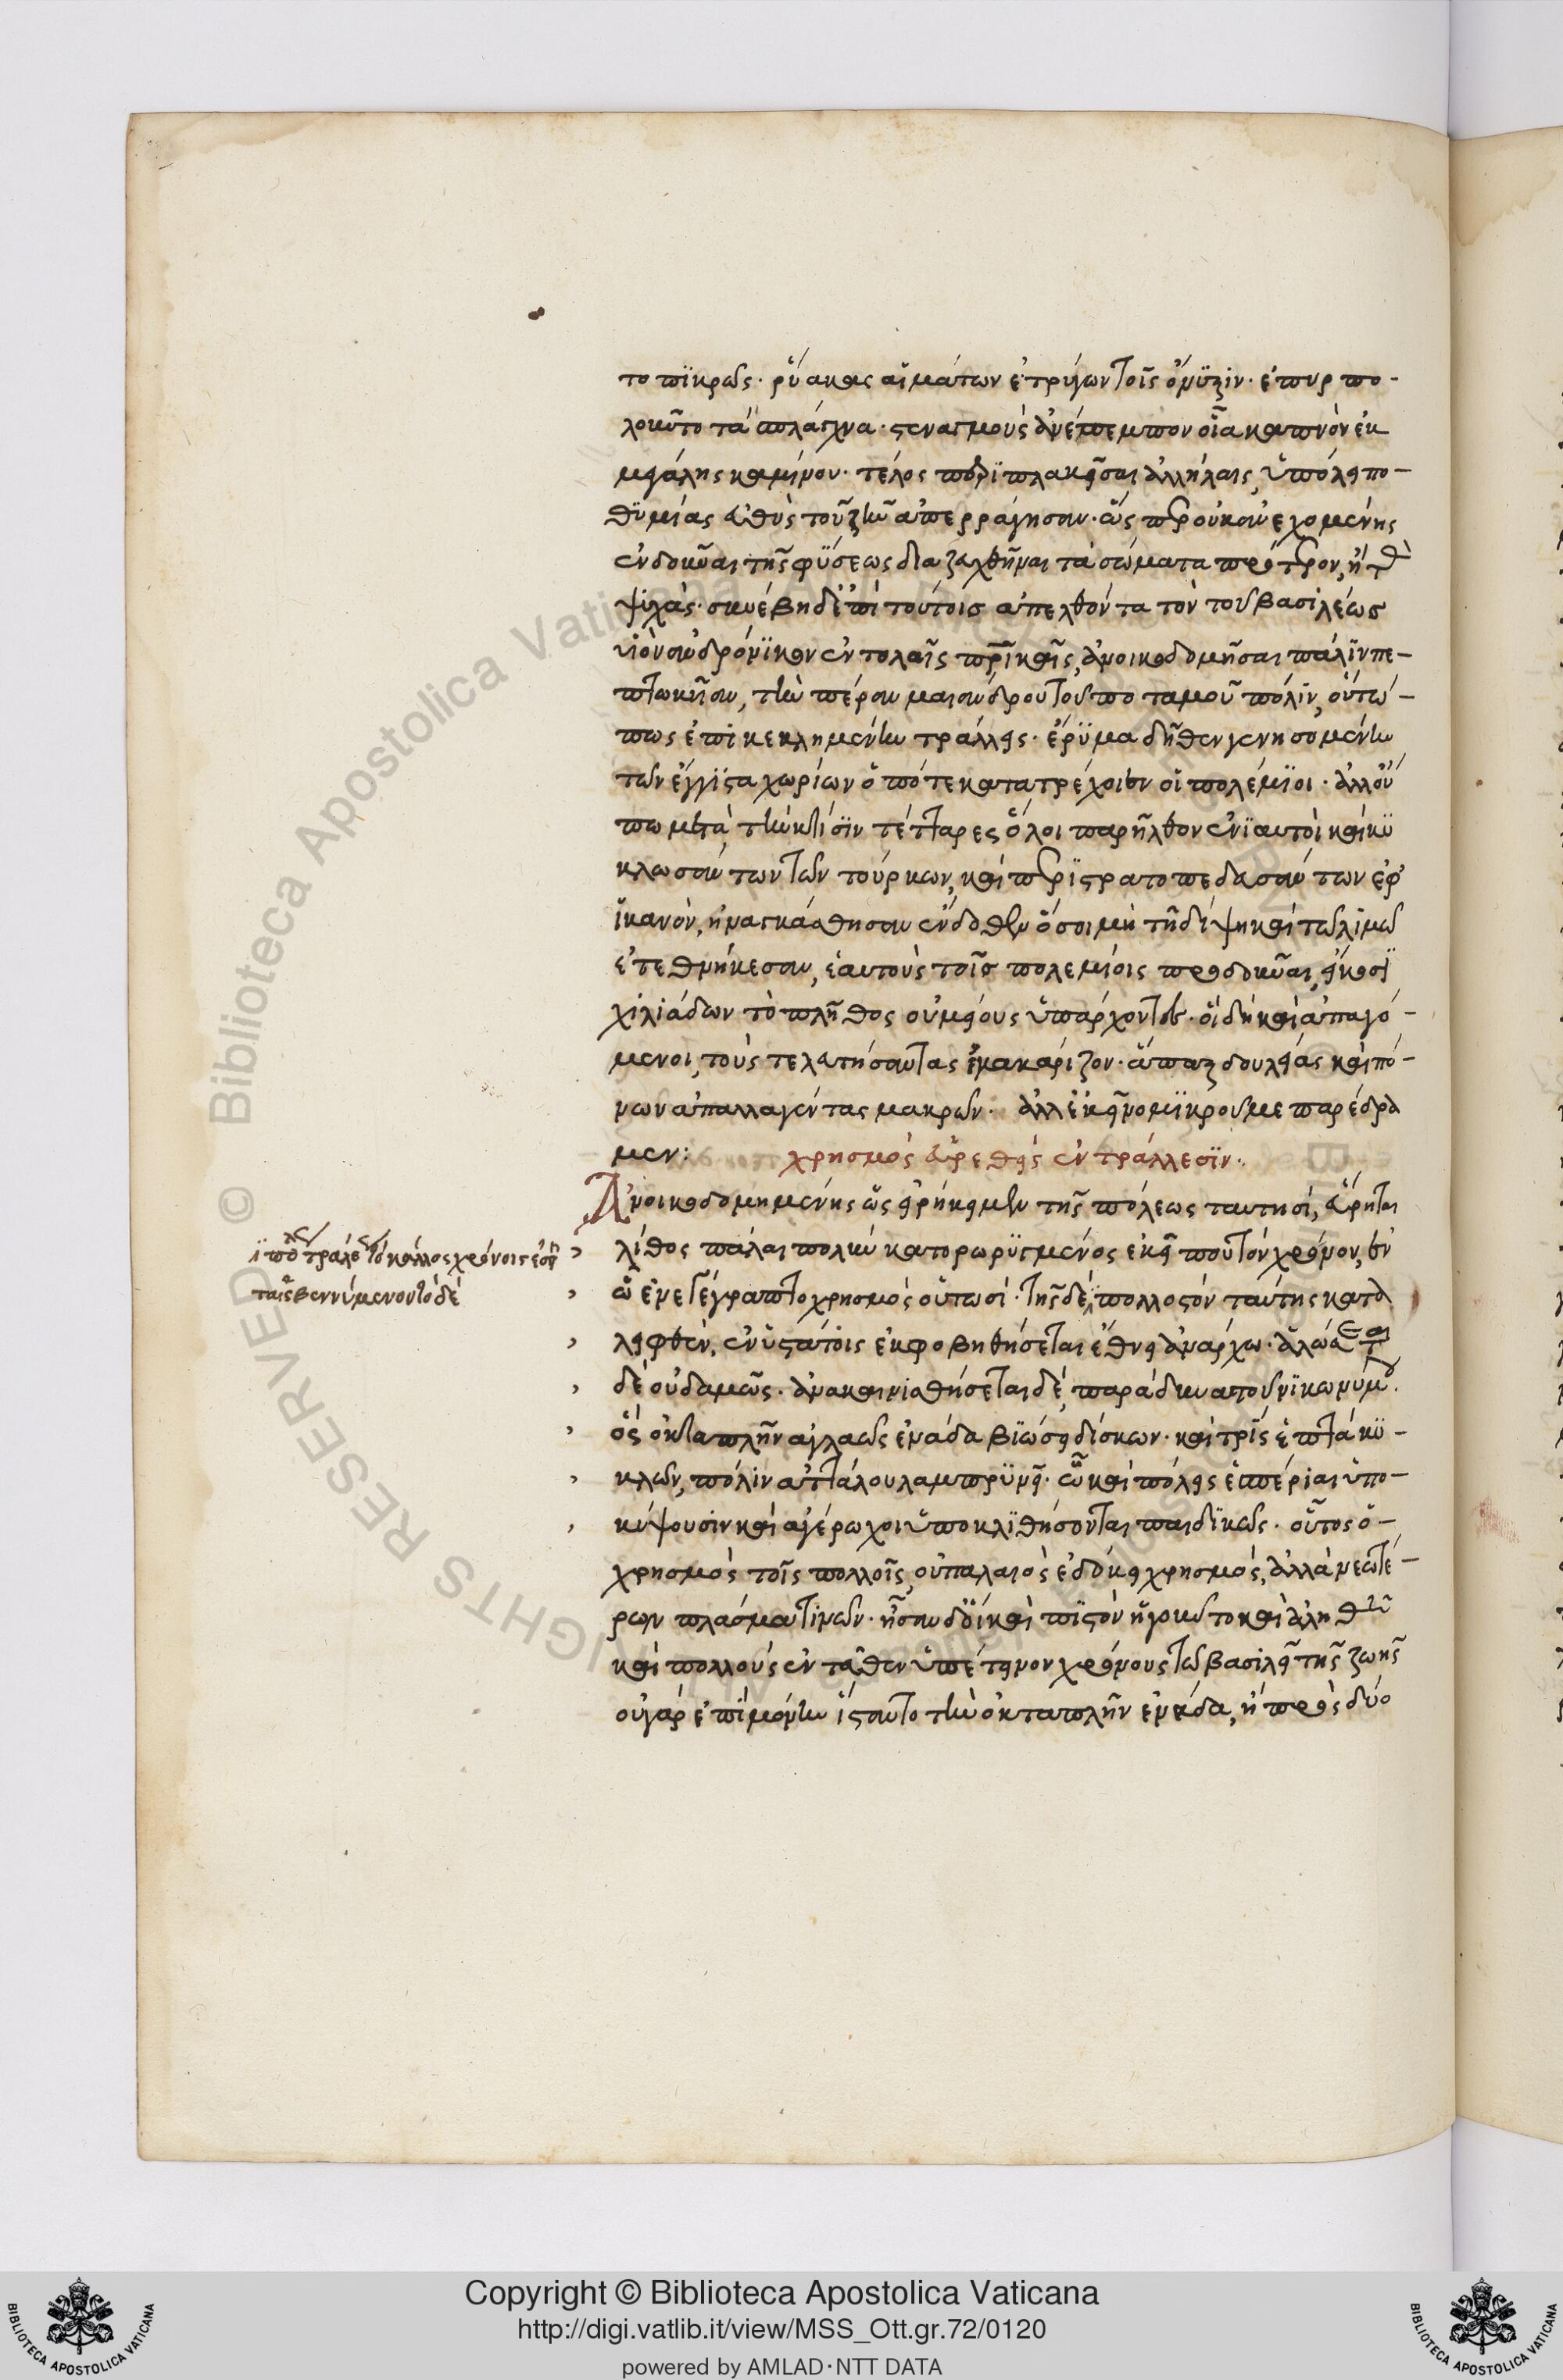 το πϊκρῶς. ῥύακας αἱμάτων ἐτρύγων τοῖς ὄνυξιν. ἐπυρπο-
λοῦντο τὰ σπλάγχνα. στεναγμοὺς ἀνέπεμπον οἷα καπνὸν ἐκ
μεγάλης καμίνου. τέλος περιπλακεῖσαι ἀλλήλαις, ὑπὸ λειπο-
θυμίας εὐθὺς τοῦ ζῆν ἀπερράγησαν. ὥσπερ οὐκ ἀνεχομένης
ἐνδοῦναι τῆς φύσεως διαζευχθῆναι τὰ σώματα πρότερον, ἢ τὰς
ψυχάς. συνέβη δὲ ἐπὶ τούτοις ἀπελθόντα τὸν τοῦ βασιλέως
υἱὸν ἀνδρόνικον ἐντολαῖς πατρικαῖς, ἀνοικοδομῆσαι πάλιν πε-
πτωκυῖαν, τὴν πέραν μαιάνδρου τοῦ ποταμοῦ πόλιν, οὕτω
πως ἐπικεκλημένην τράλλεις. ἔρυμα δῆθεν γενησομένην
τῶν ἔγγιστα χωρίων ὁπότε κατατρέχοιεν οἱ πολέμιοι. ἀλλ' οὔ
πω μετὰ τὴν κτίσιν τέτταρες ὅλοι παρῆλθον ἐνιαυτοὶ καὶ κυ
κλωσάντων τῶν τούρκων, καὶ περιστρατοπεδευσάντων ἐφ'
ἱκανὸν, ἠναγκάσθησαν ἔνδοθεν ὅσοι μὴ τῇ δίψῃ καὶ τῷ λιμῷ
ἐτεθνήκεσαν, ἑαυτοὺς τοῖς πολεμίοις προδοῦναι, εἴκοσι
χιλιάδων τὸ πλῆθος οὐ μείους ὑπάρχοντες. οἳ δὴ καὶ ἀπαγό-
μενοι, τοὺς τελευτήσαντας ἐμακάριζον. ἅπαξ δουλείας καὶ πό-
νων ἀπαλλαγέντας μακρῶν. ἀλλ' ἐκεῖνο μικροῦ με παρέδρα
μεν:
χρησμὸς εὑρεθεὶς ἐν τράλλεσιν.
Ἀνοικοδομημένης ὡς εἰρήκειμεν τῆς πόλεως ταυτησί, εὕρηται
λίθος πάλαι πολὺν κατορωρυγμένος ἐκεῖ που τὸν χρόνον, ἐν
ᾧ ἐνεγέγραπτο χρησμὸς οὑτωσί. τῆς δὲ, πολλοστὸν ταύτης κατα
λειφθὲν, ἐν ὑστάτοις ἐκφοβηθήσεται ἔθνει ἀνάρχῳ. ἁλώσεται
δὲ οὐδαμῶς. ἀνακαινισθήσεται δὲ, παρὰ δυνατοῦ νικωνύμου.
ὃς ὀκταπλῆν ἀγλαῶς ἐννάδα βιώσει δίσκων. καὶ τρὶς ἑπτὰ κύ-
κλων, πόλιν ἀττάλου λαμπρυνεῖ. ᾧ καὶ πόλεις ἑσπέριαι ὑπο-
κύψουσιν καὶ ἀγέρωχοι ὑποκλιθήσονται παιδικῶς. οὗτος ὁ
χρησμὸς τοῖς πολλοῖς, οὐ παλαιὸς ἐδόκει χρησμὸς, ἀλλὰ νεωτέ-
ρων πλάσμα τινῶν. ἦσαν δ' οἳ καὶ πιστὸν ἡγοῦντο καὶ ἀληθῆ
καὶ πολλοὺς ἐντεῦθεν ὑπέτεινον χρόνους τῷ βασιλεῖ τῆς ζωῆς
οὐ γὰρ ἐπὶ μόνην ἵσταντο τὴν ὀκταπλῆν ἐννάδα, ἢ πρὸς δύο
τράλε τὸ κάλλος χρόνοις
σβεννύμενον τὸ δέ